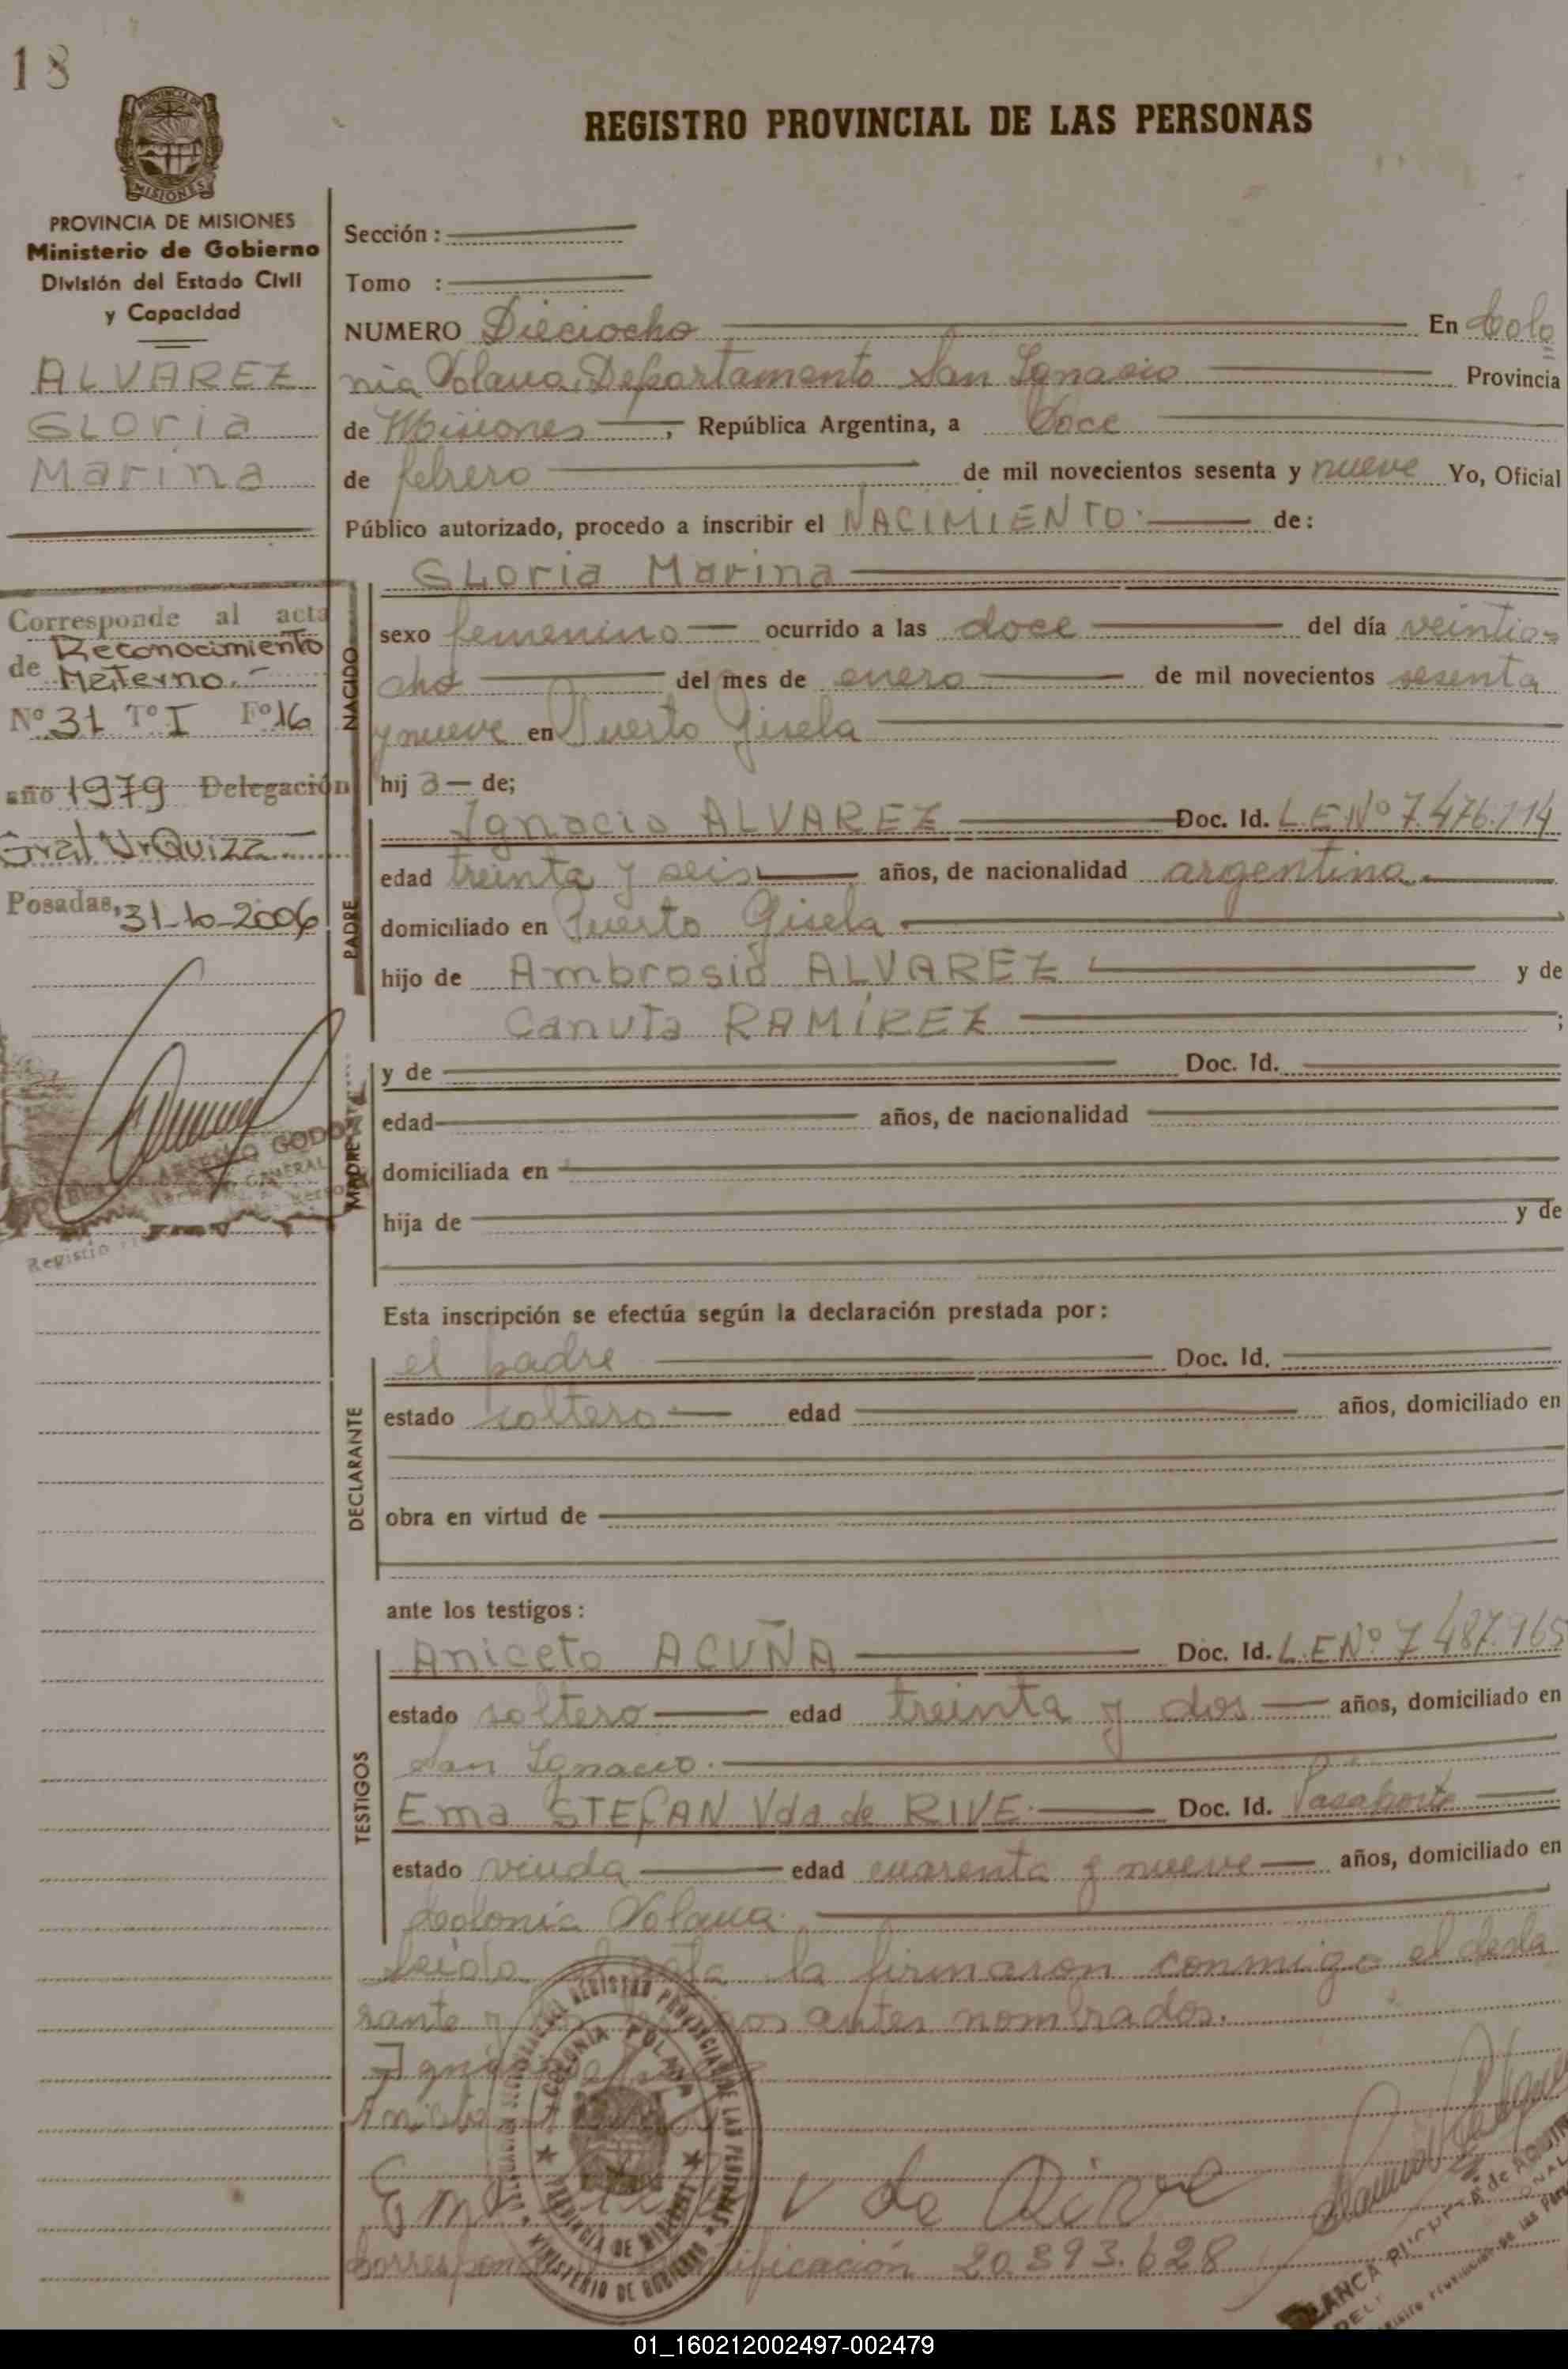 18
REGISTRO PROVINCIAL DE LAS PERSONAS
PROVINCIA DE
MISIONES
PROVINCIA DE MISIONES
Ministerio de Gobierno
División del Estado Civil
y Capacidad
ALVAREZ
GLoria
Marina
Corresponde al acta
de Reconocimiento
Materno.-
Nº 31 Tº I Fº 16
año 1979 Delegación
Gral UrQuiza
Posadas, 31-10-2006
GODOY
GENERAL
Registro
Sección :
Tomo :
NUMERO Dieciocho En Colo
nia Polana, Departamento San Ignacio Provincia
de Misiones, República Argentina, a doce
de febrero de mil novecientos sesenta y nueve Yo, Oficial
Público autorizado, procedo a inscribir el NACIMIENTO de:
GLoria Marina
NACIDO
sexo femenino ocurrido a las doce del día veintio-
cho del mes de enero de mil novecientos sesenta
y nueve en Puerto Gisela
hij a de;
PADRE
Ignacio ALVAREZ Doc. Id. L.E.Nº 7.476.114
edad treinta y seis años, de nacionalidad argentina
domiciliado en Puerto Gisela
hijo de Ambrosio ALVAREZ y de
Canuta RAMÍREZ ;
MADRE
y de Doc. Id.
edad años, de nacionalidad
domiciliada en
hija de y de
Esta inscripción se efectúa según la declaración prestada por:
DECLARANTE
el padre Doc. Id.
estado soltero edad años, domiciliado en
obra en virtud de
ante los testigos:
TESTIGOS
Aniceto ACUÑA Doc. Id. L.E.Nº 7.487.965
estado soltero edad treinta y dos años, domiciliado en
San Ignacio.
Ema STEFAN Vda de RIVE Doc. Id. Pasaporte
estado viuda edad cuarenta y nueve años, domiciliado en
Colonia Polana.
Leída el acta la firmaron conmigo el decla
rante y los testigos antes nombrados.
REGISTRO PROVINCIAL DE LAS PERSONAS
COLONIA POLANA
PROVINCIA DE MISIONES
MINISTERIO DE GOBIERNO
v de Rive
20.393.628
01_160212002497-002479